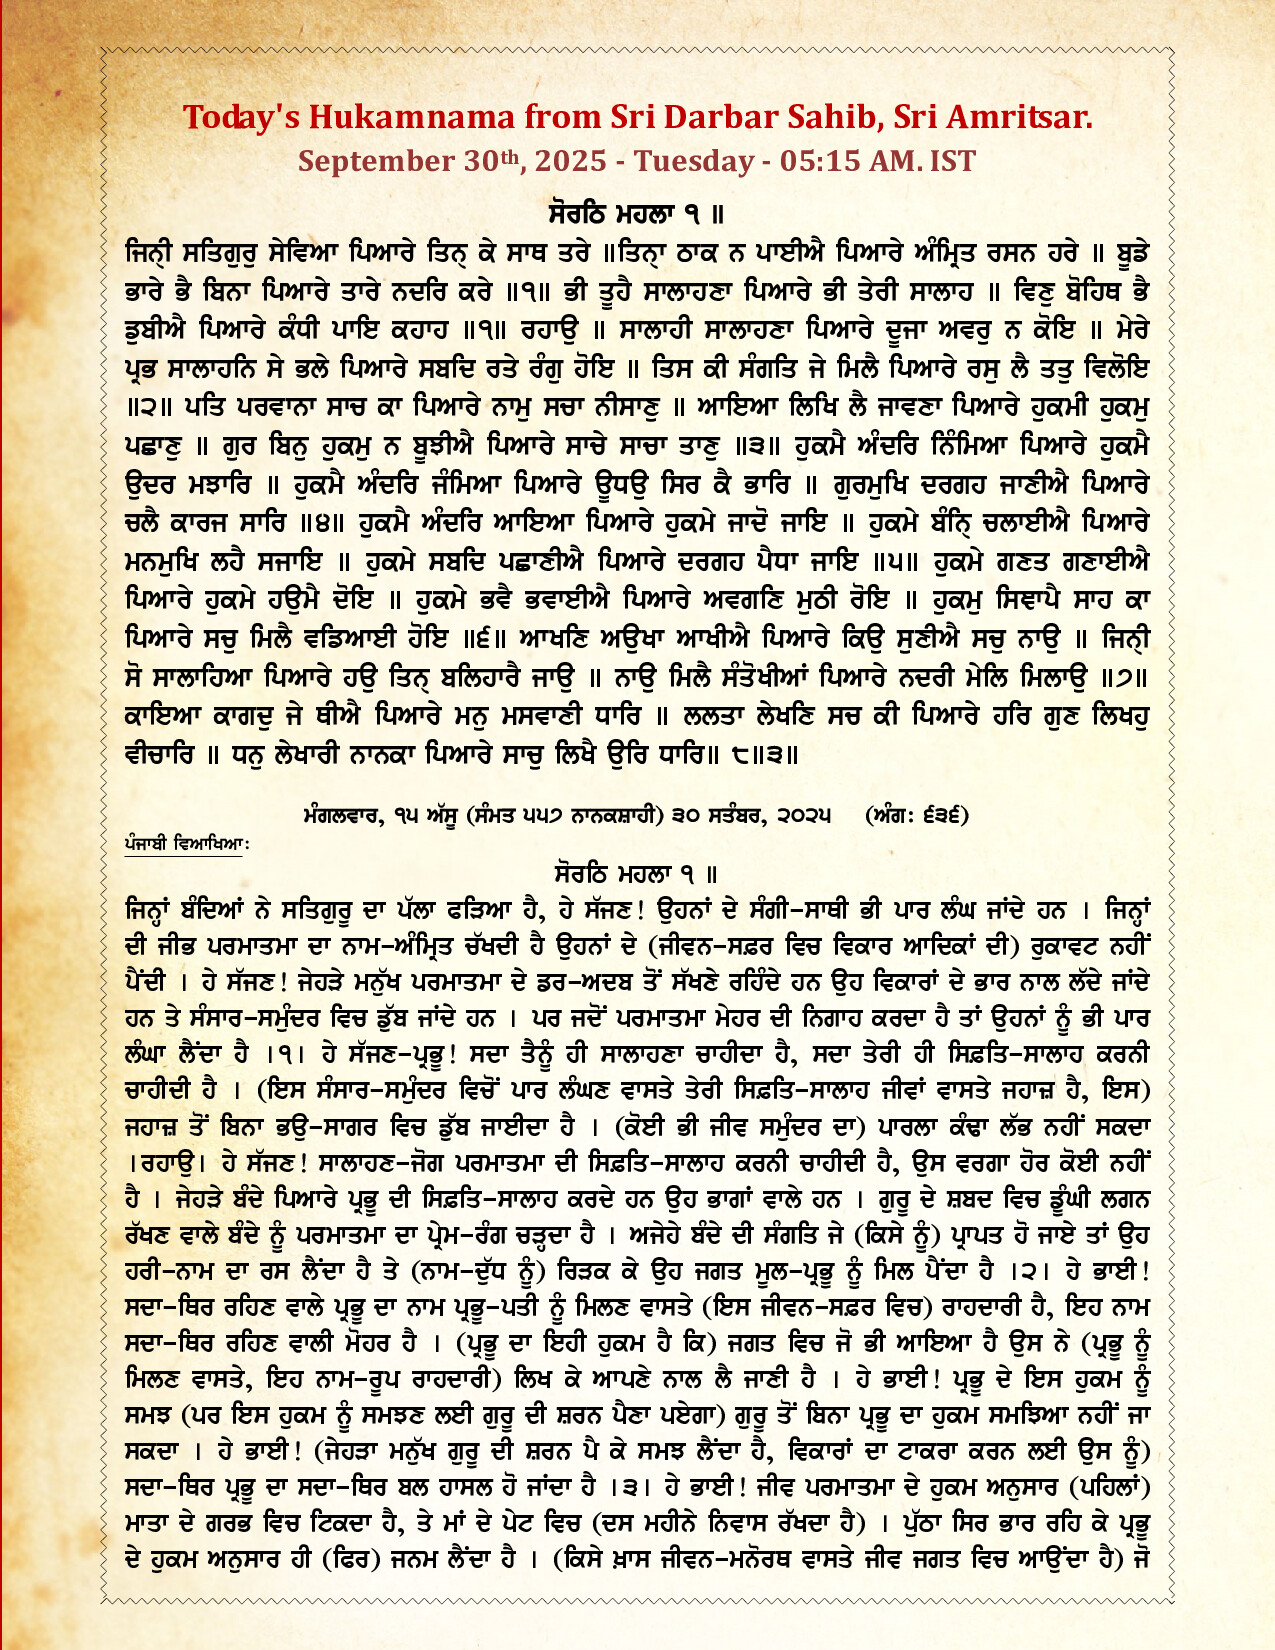 Today's Hukamnama from Sri Darbar Sahib, Sri Amritsar.
September 30th, 2025 - Tuesday - 05:15 AM. IST
ਸੋਰਠਿ ਮਹਲਾ ੧ ॥
ਜਿਨੑੀ ਸਤਿਗੁਰੁ ਸੇਵਿਆ ਪਿਆਰੇ ਤਿਨੑ ਕੇ ਸਾਥ ਤਰੇ ॥ਤਿਨੑਾ ਠਾਕ ਨ ਪਾਈਐ ਪਿਆਰੇ ਅੰਮ੍ਰਿਤ ਰਸਨ ਹਰੇ ॥ ਬੂਡੇ
ਭਾਰੇ ਭੈ ਬਿਨਾ ਪਿਆਰੇ ਤਾਰੇ ਨਦਰਿ ਕਰੇ ॥੧॥ ਭੀ ਤੂਹੈ ਸਾਲਾਹਣਾ ਪਿਆਰੇ ਭੀ ਤੇਰੀ ਸਾਲਾਹ ॥ ਵਿਣੁ ਬੋਹਿਥ ਭੈ
ਡੁਬੀਐ ਪਿਆਰੇ ਕੰਧੀ ਪਾਇ ਕਹਾਹ ॥੧॥ ਰਹਾਉ ॥ ਸਾਲਾਹੀ ਸਾਲਾਹਣਾ ਪਿਆਰੇ ਦੂਜਾ ਅਵਰੁ ਨ ਕੋਇ ॥ ਮੇਰੇ
ਪ੍ਰਭ ਸਾਲਾਹਨਿ ਸੇ ਭਲੇ ਪਿਆਰੇ ਸਬਦਿ ਰਤੇ ਰੰਗੁ ਹੋਇ ॥ ਤਿਸ ਕੀ ਸੰਗਤਿ ਜੇ ਮਿਲੈ ਪਿਆਰੇ ਰਸੁ ਲੈ ਤਤੁ ਵਿਲੋਇ
॥੨॥ ਪਤਿ ਪਰਵਾਨਾ ਸਾਚ ਕਾ ਪਿਆਰੇ ਨਾਮੁ ਸਚਾ ਨੀਸਾਣੁ ॥ ਆਇਆ ਲਿਖਿ ਲੈ ਜਾਵਣਾ ਪਿਆਰੇ ਹੁਕਮੀ ਹੁਕਮੁ
ਪਛਾਣੁ ॥ ਗੁਰ ਬਿਨੁ ਹੁਕਮੁ ਨ ਬੂਝੀਐ ਪਿਆਰੇ ਸਾਚੇ ਸਾਚਾ ਤਾਣੁ ॥੩॥ ਹੁਕਮੈ ਅੰਦਰਿ ਨਿੰਮਿਆ ਪਿਆਰੇ ਹੁਕਮੈ
ਉਦਰ ਮਝਾਰਿ ॥ ਹੁਕਮੈ ਅੰਦਰਿ ਜੰਮਿਆ ਪਿਆਰੇ ਊਧਉ ਸਿਰ ਕੈ ਭਾਰਿ ॥ ਗੁਰਮੁਖਿ ਦਰਗਹ ਜਾਣੀਐ ਪਿਆਰੇ
ਚਲੈ ਕਾਰਜ ਸਾਰਿ ॥੪॥ ਹੁਕਮੈ ਅੰਦਰਿ ਆਇਆ ਪਿਆਰੇ ਹੁਕਮੇ ਜਾਦੋ ਜਾਇ ॥ ਹੁਕਮੇ ਬੰਨਿੑ ਚਲਾਈਐ ਪਿਆਰੇ
ਮਨਮੁਖਿ ਲਹੈ ਸਜਾਇ ॥ ਹੁਕਮੇ ਸਬਦਿ ਪਛਾਣੀਐ ਪਿਆਰੇ ਦਰਗਹ ਪੈਧਾ ਜਾਇ ॥੫॥ ਹੁਕਮੇ ਗਣਤ ਗਣਾਈਐ
ਪਿਆਰੇ ਹੁਕਮੇ ਹਉਮੈ ਦੋਇ ॥ ਹੁਕਮੇ ਭਵੈ ਭਵਾਈਐ ਪਿਆਰੇ ਅਵਗਣਿ ਮੁਠੀ ਰੋਇ ॥ ਹੁਕਮੁ ਸਿਞਾਪੈ ਸਾਹ ਕਾ
ਪਿਆਰੇ ਸਚੁ ਮਿਲੈ ਵਡਿਆਈ ਹੋਇ ॥੬॥ ਆਖਣਿ ਅਉਖਾ ਆਖੀਐ ਪਿਆਰੇ ਕਿਉ ਸੁਣੀਐ ਸਚੁ ਨਾਉ ॥ ਜਿਨੑੀ
ਸੋ ਸਾਲਾਹਿਆ ਪਿਆਰੇ ਹਉ ਤਿਨੑ ਬਲਿਹਾਰੈ ਜਾਉ ॥ ਨਾਉ ਮਿਲੈ ਸੰਤੋਖੀਆਂ ਪਿਆਰੇ ਨਦਰੀ ਮੇਲਿ ਮਿਲਾਉ ॥੭॥
ਕਾਇਆ ਕਾਗਦੁ ਜੇ ਥੀਐ ਪਿਆਰੇ ਮਨੁ ਮਸਵਾਣੀ ਧਾਰਿ ॥ ਲਲਤਾ ਲੇਖਣਿ ਸਚ ਕੀ ਪਿਆਰੇ ਹਰਿ ਗੁਣ ਲਿਖਹੁ
ਵੀਚਾਰਿ ॥ ਧਨੁ ਲੇਖਾਰੀ ਨਾਨਕਾ ਪਿਆਰੇ ਸਾਚੁ ਲਿਖੈ ਉਰਿ ਧਾਰਿ॥ ੮॥੩॥
ਮੰਗਲਵਾਰ, ੧੫ ਅੱਸੂ (ਸੰਮਤ ੫੫੭ ਨਾਨਕਸ਼ਾਹੀ) ੩੦ ਸਤੰਬਰ, ੨੦੨੫ (ਅੰਗ: ੬੩੬)
ਪੰਜਾਬੀ ਵਿਆਖਿਆ:
ਸੋਰਠਿ ਮਹਲਾ ੧ ॥
ਜਿਨ੍ਹਾਂ ਬੰਦਿਆਂ ਨੇ ਸਤਿਗੁਰੂ ਦਾ ਪੱਲਾ ਫੜਿਆ ਹੈ, ਹੇ ਸੱਜਣ! ਉਹਨਾਂ ਦੇ ਸੰਗੀ-ਸਾਥੀ ਭੀ ਪਾਰ ਲੰਘ ਜਾਂਦੇ ਹਨ । ਜਿਨ੍ਹਾਂ
ਦੀ ਜੀਭ ਪਰਮਾਤਮਾ ਦਾ ਨਾਮ-ਅੰਮ੍ਰਿਤ ਚੱਖਦੀ ਹੈ ਉਹਨਾਂ ਦੇ (ਜੀਵਨ-ਸਫ਼ਰ ਵਿਚ ਵਿਕਾਰ ਆਦਿਕਾਂ ਦੀ) ਰੁਕਾਵਟ ਨਹੀਂ
ਪੈਂਦੀ । ਹੇ ਸੱਜਣ! ਜੇਹੜੇ ਮਨੁੱਖ ਪਰਮਾਤਮਾ ਦੇ ਡਰ-ਅਦਬ ਤੋਂ ਸੱਖਣੇ ਰਹਿੰਦੇ ਹਨ ਉਹ ਵਿਕਾਰਾਂ ਦੇ ਭਾਰ ਨਾਲ ਲੱਦੇ ਜਾਂਦੇ
ਹਨ ਤੇ ਸੰਸਾਰ-ਸਮੁੰਦਰ ਵਿਚ ਡੁੱਬ ਜਾਂਦੇ ਹਨ । ਪਰ ਜਦੋਂ ਪਰਮਾਤਮਾ ਮੇਹਰ ਦੀ ਨਿਗਾਹ ਕਰਦਾ ਹੈ ਤਾਂ ਉਹਨਾਂ ਨੂੰ ਭੀ ਪਾਰ
ਲੰਘਾ ਲੈਂਦਾ ਹੈ ।੧। ਹੇ ਸੱਜਣ-ਪ੍ਰਭੂ! ਸਦਾ ਤੈਨੂੰ ਹੀ ਸਾਲਾਹਣਾ ਚਾਹੀਦਾ ਹੈ, ਸਦਾ ਤੇਰੀ ਹੀ ਸਿਫ਼ਤਿ-ਸਾਲਾਹ ਕਰਨੀ
ਚਾਹੀਦੀ ਹੈ । (ਇਸ ਸੰਸਾਰ-ਸਮੁੰਦਰ ਵਿਚੋਂ ਪਾਰ ਲੰਘਣ ਵਾਸਤੇ ਤੇਰੀ ਸਿਫ਼ਤਿ-ਸਾਲਾਹ ਜੀਵਾਂ ਵਾਸਤੇ ਜਹਾਜ਼ ਹੈ, ਇਸ)
ਜਹਾਜ਼ ਤੋਂ ਬਿਨਾ ਭਉ-ਸਾਗਰ ਵਿਚ ਡੁੱਬ ਜਾਈਦਾ ਹੈ । (ਕੋਈ ਭੀ ਜੀਵ ਸਮੁੰਦਰ ਦਾ) ਪਾਰਲਾ ਕੰਢਾ ਲੱਭ ਨਹੀਂ ਸਕਦਾ
।ਰਹਾਉ। ਹੇ ਸੱਜਣ! ਸਾਲਾਹਣ-ਜੋਗ ਪਰਮਾਤਮਾ ਦੀ ਸਿਫ਼ਤਿ-ਸਾਲਾਹ ਕਰਨੀ ਚਾਹੀਦੀ ਹੈ, ਉਸ ਵਰਗਾ ਹੋਰ ਕੋਈ ਨਹੀਂ
ਹੈ । ਜੇਹੜੇ ਬੰਦੇ ਪਿਆਰੇ ਪ੍ਰਭੂ ਦੀ ਸਿਫ਼ਤਿ-ਸਾਲਾਹ ਕਰਦੇ ਹਨ ਉਹ ਭਾਗਾਂ ਵਾਲੇ ਹਨ । ਗੁਰੂ ਦੇ ਸ਼ਬਦ ਵਿਚ ਡੂੰਘੀ ਲਗਨ
ਰੱਖਣ ਵਾਲੇ ਬੰਦੇ ਨੂੰ ਪਰਮਾਤਮਾ ਦਾ ਪ੍ਰੇਮ-ਰੰਗ ਚੜ੍ਹਦਾ ਹੈ । ਅਜੇਹੇ ਬੰਦੇ ਦੀ ਸੰਗਤਿ ਜੇ (ਕਿਸੇ ਨੂੰ) ਪ੍ਰਾਪਤ ਹੋ ਜਾਏ ਤਾਂ ਉਹ
ਹਰੀ-ਨਾਮ ਦਾ ਰਸ ਲੈਂਦਾ ਹੈ ਤੇ (ਨਾਮ-ਦੁੱਧ ਨੂੰ) ਰਿੜਕ ਕੇ ਉਹ ਜਗਤ ਮੂਲ-ਪ੍ਰਭੂ ਨੂੰ ਮਿਲ ਪੈਂਦਾ ਹੈ ।੨। ਹੇ ਭਾਈ!
ਸਦਾ-ਥਿਰ ਰਹਿਣ ਵਾਲੇ ਪ੍ਰਭੂ ਦਾ ਨਾਮ ਪ੍ਰਭੂ-ਪਤੀ ਨੂੰ ਮਿਲਣ ਵਾਸਤੇ (ਇਸ ਜੀਵਨ-ਸਫ਼ਰ ਵਿਚ) ਰਾਹਦਾਰੀ ਹੈ, ਇਹ ਨਾਮ
ਸਦਾ-ਥਿਰ ਰਹਿਣ ਵਾਲੀ ਮੋਹਰ ਹੈ । (ਪ੍ਰਭੂ ਦਾ ਇਹੀ ਹੁਕਮ ਹੈ ਕਿ) ਜਗਤ ਵਿਚ ਜੋ ਭੀ ਆਇਆ ਹੈ ਉਸ ਨੇ (ਪ੍ਰਭੂ ਨੂੰ
ਮਿਲਣ ਵਾਸਤੇ, ਇਹ ਨਾਮ-ਰੂਪ ਰਾਹਦਾਰੀ) ਲਿਖ ਕੇ ਆਪਣੇ ਨਾਲ ਲੈ ਜਾਣੀ ਹੈ । ਹੇ ਭਾਈ! ਪ੍ਰਭੂ ਦੇ ਇਸ ਹੁਕਮ ਨੂੰ
ਸਮਝ (ਪਰ ਇਸ ਹੁਕਮ ਨੂੰ ਸਮਝਣ ਲਈ ਗੁਰੂ ਦੀ ਸ਼ਰਨ ਪੈਣਾ ਪਏਗਾ) ਗੁਰੂ ਤੋਂ ਬਿਨਾ ਪ੍ਰਭੂ ਦਾ ਹੁਕਮ ਸਮਝਿਆ ਨਹੀਂ ਜਾ
ਸਕਦਾ । ਹੇ ਭਾਈ! (ਜੇਹੜਾ ਮਨੁੱਖ ਗੁਰੂ ਦੀ ਸ਼ਰਨ ਪੈ ਕੇ ਸਮਝ ਲੈਂਦਾ ਹੈ, ਵਿਕਾਰਾਂ ਦਾ ਟਾਕਰਾ ਕਰਨ ਲਈ ਉਸ ਨੂੰ)
ਸਦਾ-ਥਿਰ ਪ੍ਰਭੂ ਦਾ ਸਦਾ-ਥਿਰ ਬਲ ਹਾਸਲ ਹੋ ਜਾਂਦਾ ਹੈ ।੩। ਹੇ ਭਾਈ! ਜੀਵ ਪਰਮਾਤਮਾ ਦੇ ਹੁਕਮ ਅਨੁਸਾਰ (ਪਹਿਲਾਂ)
ਮਾਤਾ ਦੇ ਗਰਭ ਵਿਚ ਟਿਕਦਾ ਹੈ, ਤੇ ਮਾਂ ਦੇ ਪੇਟ ਵਿਚ (ਦਸ ਮਹੀਨੇ ਨਿਵਾਸ ਰੱਖਦਾ ਹੈ) । ਪੁੱਠਾ ਸਿਰ ਭਾਰ ਰਹਿ ਕੇ ਪ੍ਰਭੂ
ਦੇ ਹੁਕਮ ਅਨੁਸਾਰ ਹੀ (ਫਿਰ) ਜਨਮ ਲੈਂਦਾ ਹੈ । (ਕਿਸੇ ਖ਼ਾਸ ਜੀਵਨ-ਮਨੋਰਥ ਵਾਸਤੇ ਜੀਵ ਜਗਤ ਵਿਚ ਆਉਂਦਾ ਹੈ) ਜੋ